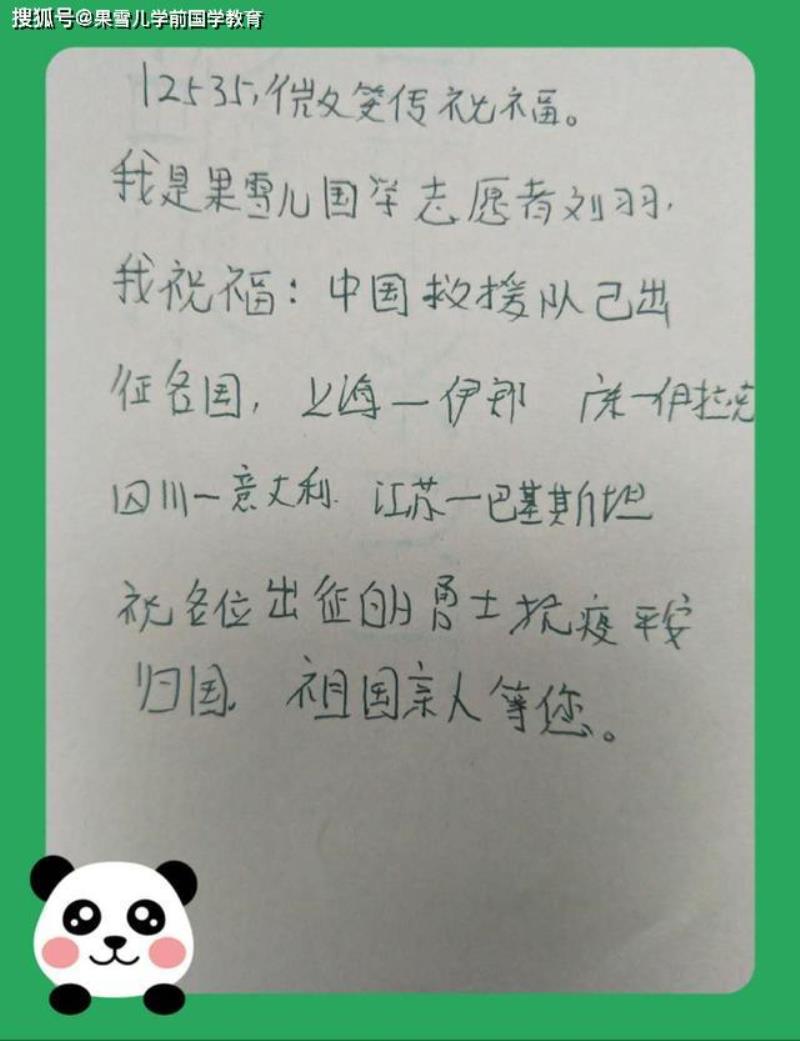 搜狐号@果雪儿学前国学教育
12535,微笑传祝福。
我是果雪儿国学志愿者刘羽,
我祝福:中国救援队已出
征各国,上海一伊郎 广东一伊拉克
四川一意大利.江苏一巴基斯坦
祝各位出征的勇士抗疫平安
归国,祖国亲人等您。